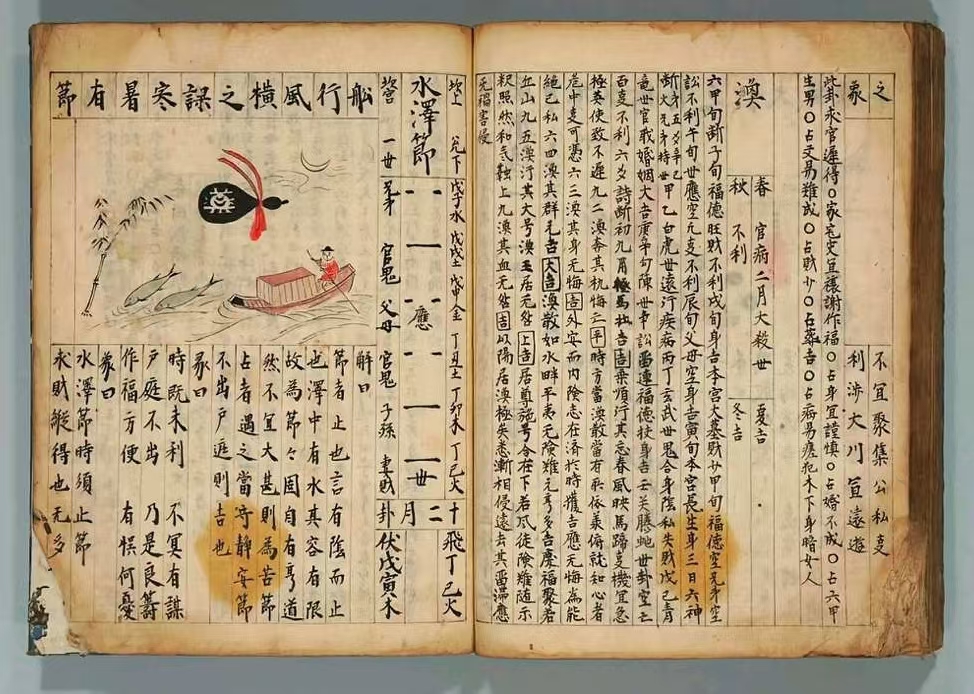 之 不宜聚集公私变
象 利涉大川宜遠遊
此卦求官遲得○家宅史宜禳謝作福○占身宜謹慎○占婚不成○占六甲
生男○占交易難成○占財少○占墓吉○占病易瘥犯木下身暗女人
渙
春 官病二月大殺世 夏吉
秋 不利 冬吉
六甲旬断子旬福德旺財不利戌旬身吉本宮大墓財廿甲旬福德空兄弟空
訟不利午旬世應空元支不利辰旬父母空身吉寅旬本宮長生身三日六神
甲乙白虎世遠行疾病丙丁玄武世鬼合身陰私失財戊己青
竜世官戰婚姻大吉庚辛句陳世幸訟畨連福德扶身吉壬癸螣蛇世卦空亡
百支不利六爻詩断初九用極馬壮吉吉乗順行其忘春風映馬蹄爻機宜急
極英使致不遲九二渙奔其杌悔亡平時方當渙散當有所依㒒傋就知心者
危中变可憑六三渙其身无悔吉外安而内陰志在済於時獲吉應无悔為能
絕己私六四渙其群元吉大吉渙散如水畔平夷无険難元亨多吉慶福聚若
丘山九五渙汗其大号渙王居无咎上吉居尊施号令在下若风従險難随示
釈照然和气融上九渙其血无咎吉以陽居渙極失悉漸相侵遠去其當湿應
无禍害侵
舩行風横之課寒暑有節
坎上 兌下
水澤節
坎宮 一世
戊子水 戊戌土 戊申金 丁丑土 丁卯木 丁巳火
應 世
兄弟 官鬼 父母 官鬼 子孫 妻財
十二月卦
飛丁巳火
伏戊寅木
解曰
節者止也言有陰而止
也澤中有水其容有限
故為節々固自有亨道
然不宜大甚則為苦節
占者遇之當守靜安節
不出戸庭則吉也
彖曰
時既未利 不冥有謀
戸庭不出 乃是良籌
作福方便 有悞何憂
象曰
水澤節時須止節
求財縦得也无多